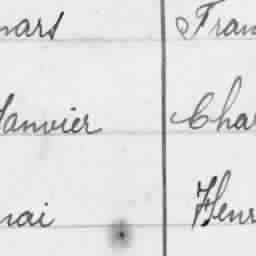 mars Fran
Janvier Char
mai Henr